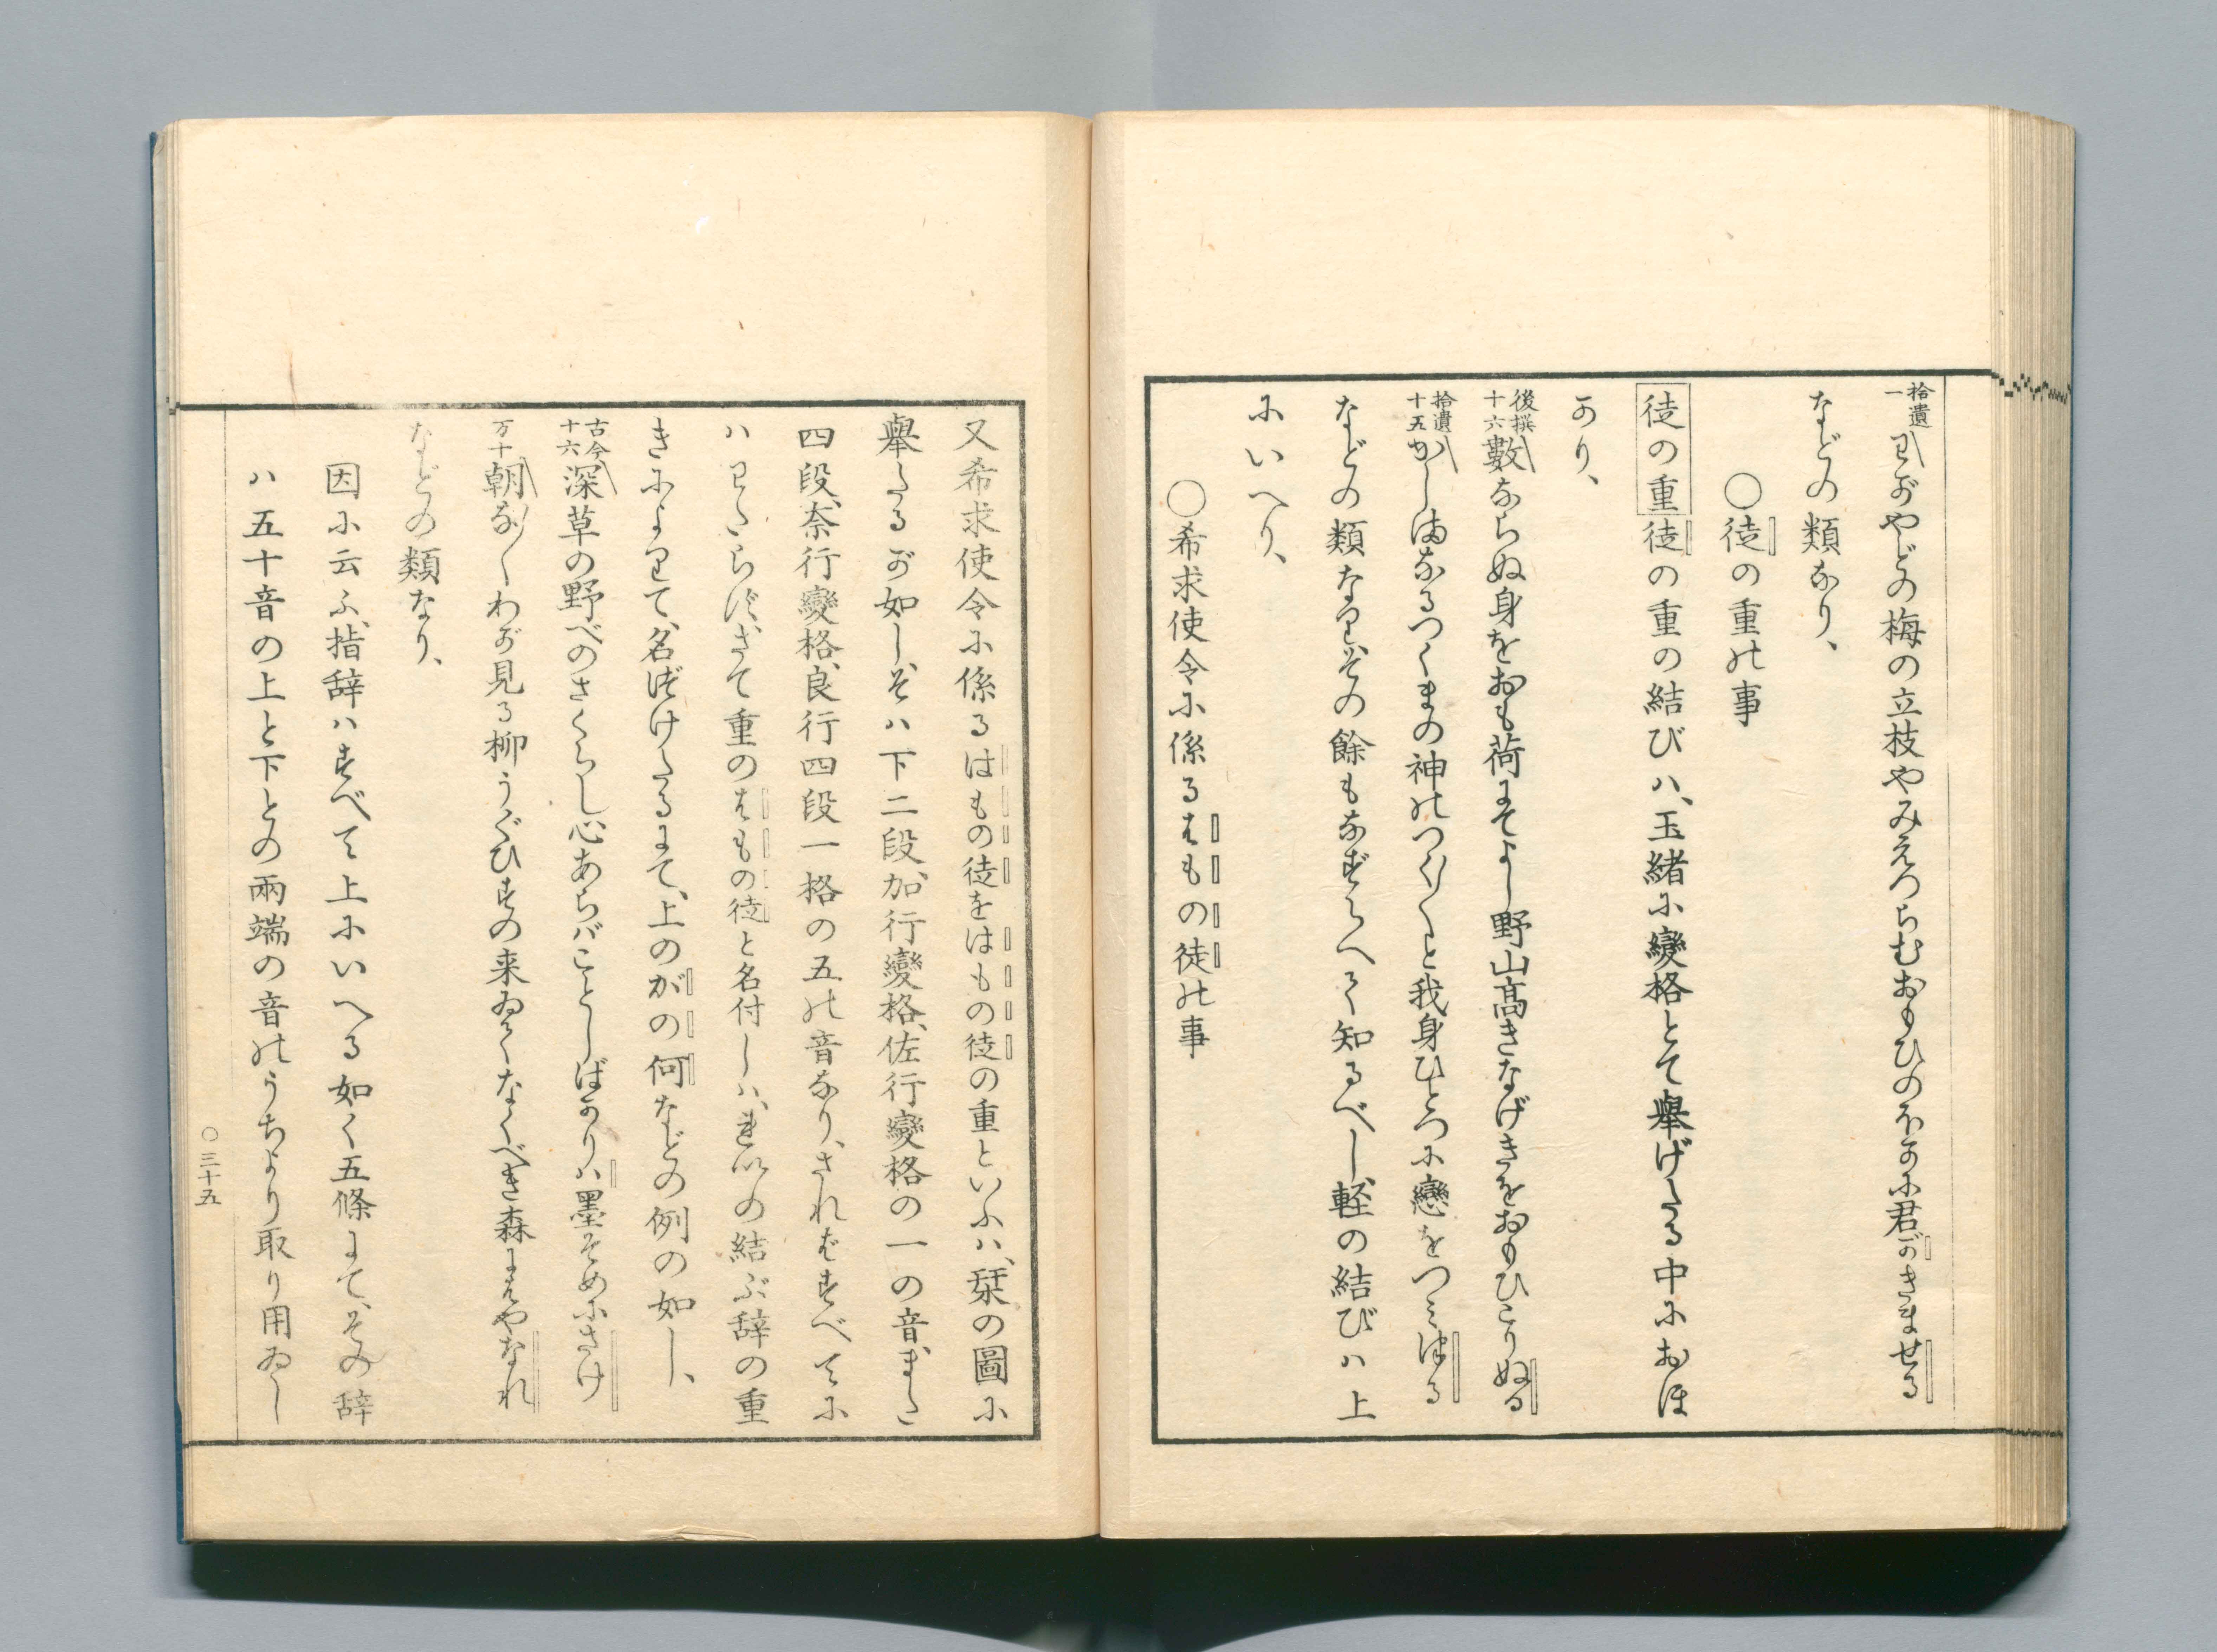 拾遺一わがやどの梅の立枝やみえつらむおもひのほかに君がきませる
などの類なり、
○徒の重の事
徒の重徒の重の結びハ、玉緒に變格とて擧げたる中におほ
かり、
後撰十六數ならぬ身をおも荷にてよし野山高きなげきをおもひこりぬる
拾遺十五かしまなるつくまの神のつく〴〵と我身ひとつに戀をつみつる
などの類なり、その餘もなずらへて知るべし、軽の結びハ上
にいへり、
○希求使令に係るはもの徒の事
又希求使令に係るはもの徒をはもの徒の重といふハ、栞の圖に
擧たるが如し、そハ下二段、加行變格、佐行變格の一の音、また
四段、奈行變格、良行四段一格の五の音なり、されバすべてに
ハわたらず、さて重のはもの徒と名付しハ、の結ぶ辞の重
きによりて、名づけたるにて、上のがの何などの例の如し、
古今十六深草の野べのさくらし心あらバことしばかりハ墨ぞめにさけ
万十朝な〳〵わが見る柳うぐひすの来ゐてなくべき森にはやなれ
などの類なり、
因に云ふ、指辞ハすべて上にいへる如く五條にて、その辞
ハ五十音の上と下との兩端の音のうちより取り用ゐし
○三十五